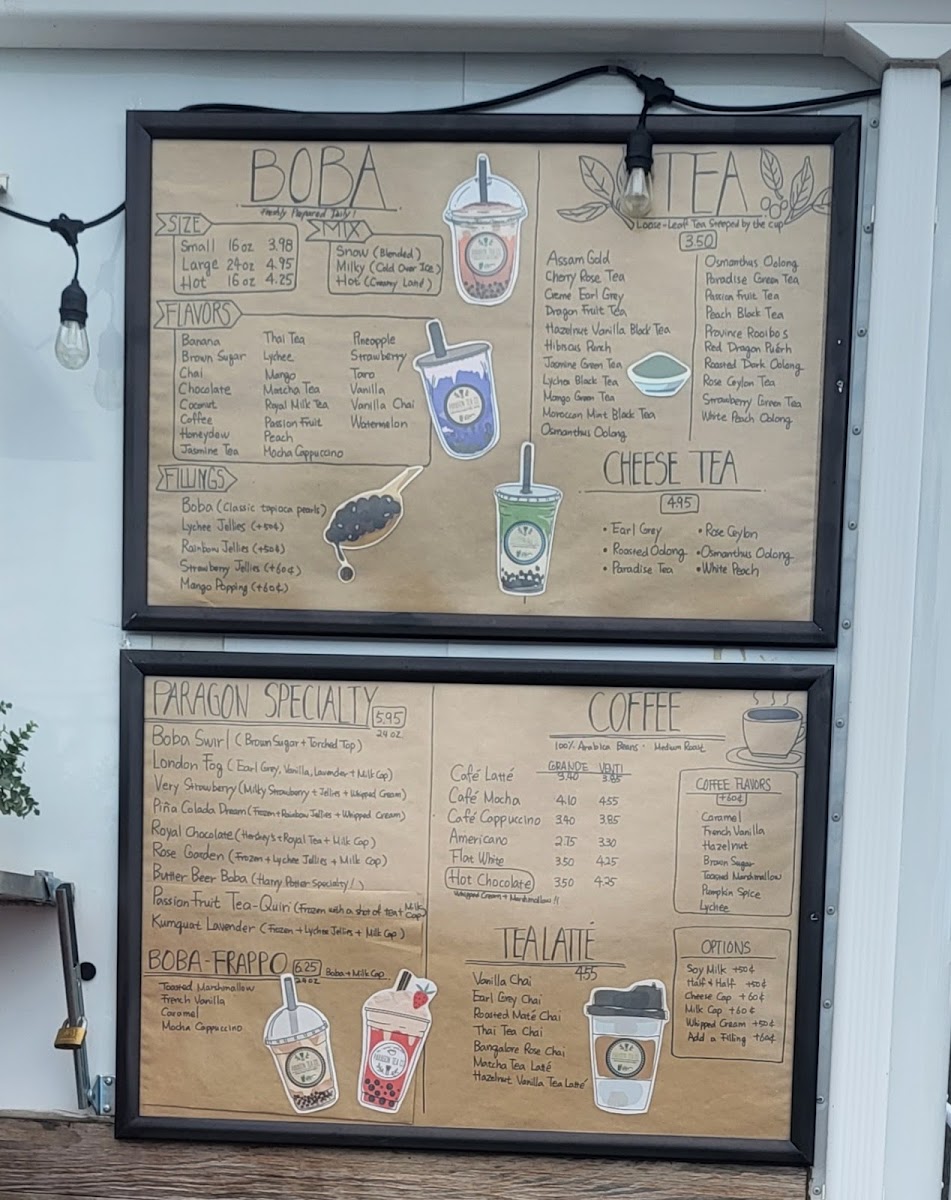 BOBA
Freshly Prepared Daily!
SIZE
Small 16oz 3.98
Large 24oz 4.95
Hot 16oz 4.25
MIX
Snow (Blended)
Milky (Cold Over Ice)
Hot (Creamy Land)
FLAVORS
Banana
Brown Sugar
Chai
Chocolate
Coconut
Coffee
Honeydew
Jasmine Tea
Thai Tea
Lychee
Mango
Matcha Tea
Royal Milk Tea
Passion Fruit
Peach
Mocha Cappuccino
Pineapple
Strawberry
Taro
Vanilla
Vanilla Chai
Watermelon
FILLINGS
Boba (Classic tapioca pearls)
Lychee Jellies (+50¢)
Rainbow Jellies (+50¢)
Strawberry Jellies (+60¢)
Mango Popping (+60¢)
TEA
Loose-Leaf Tea Steeped by the cup
3.50
Assam Gold
Cherry Rose Tea
Creme Earl Grey
Dragon Fruit Tea
Hazelnut Vanilla Black Tea
Hibiscus Punch
Jasmine Green Tea
Lychee Black Tea
Mango Green Tea
Moroccan Mint Black Tea
Osmanthus Oolong
Osmanthus Oolong
Paradise Green Tea
Passion Fruit Tea
Peach Black Tea
Province Rooibos
Red Dragon Puérh
Roasted Dark Oolong
Rose Ceylon Tea
Strawberry Green Tea
White Peach Oolong
CHEESE TEA
4.95
• Earl Grey
• Roasted Oolong
• Paradise Tea
• Rose Ceylon
• Osmanthus Oolong
• White Peach
PARAGON SPECIALTY 5.95
24oz
Boba Swirl (Brown Sugar + Torched Top)
London Fog (Earl Grey, Vanilla, Lavender + Milk Cap)
Very Strawberry (Milky Strawberry + Jellies + Whipped Cream)
Piña Colada Dream (Frozen + Rainbow Jellies + Whipped Cream)
Royal Chocolate (Hershey's + Royal Tea + Milk Cap)
Rose Garden (Frozen + Lychee Jellies + Milk Cap)
Butter Beer Boba (Harry Potter Specialty!)
Passion Fruit Tea-Quiri (Frozen with a shot of tea + Milk Cap)
Kumquat Lavender (Frozen + Lychee Jellies + Milk Cap)
BOBA-FRAPPO 6.25 Boba + Milk Cap
24oz
Toasted Marshmallow
French Vanilla
Caramel
Mocha Cappuccino
COFFEE
100% Arabica Beans · Medium Roast
GRANDE VENTI
Café Latté 3.40 3.85
Café Mocha 4.10 4.55
Café Cappuccino 3.40 3.85
Americano 2.75 3.30
Flat White 3.50 4.25
Hot Chocolate 3.50 4.25
Whipped Cream + Marshmallow!!
COFFEE FLAVORS
+60¢
Caramel
French Vanilla
Hazelnut
Brown Sugar
Toasted Marshmallow
Pumpkin Spice
Lychee
TEA LATTÉ
4.55
Vanilla Chai
Earl Grey Chai
Roasted Maté Chai
Thai Tea Chai
Bangalore Rose Chai
Matcha Tea Latté
Hazelnut Vanilla Tea Latté
OPTIONS
Soy Milk +50¢
Half & Half +50¢
Cheese Cap +60¢
Milk Cap +60¢
Whipped Cream +50¢
Add a Filling +60¢
PARAGON TEA CO